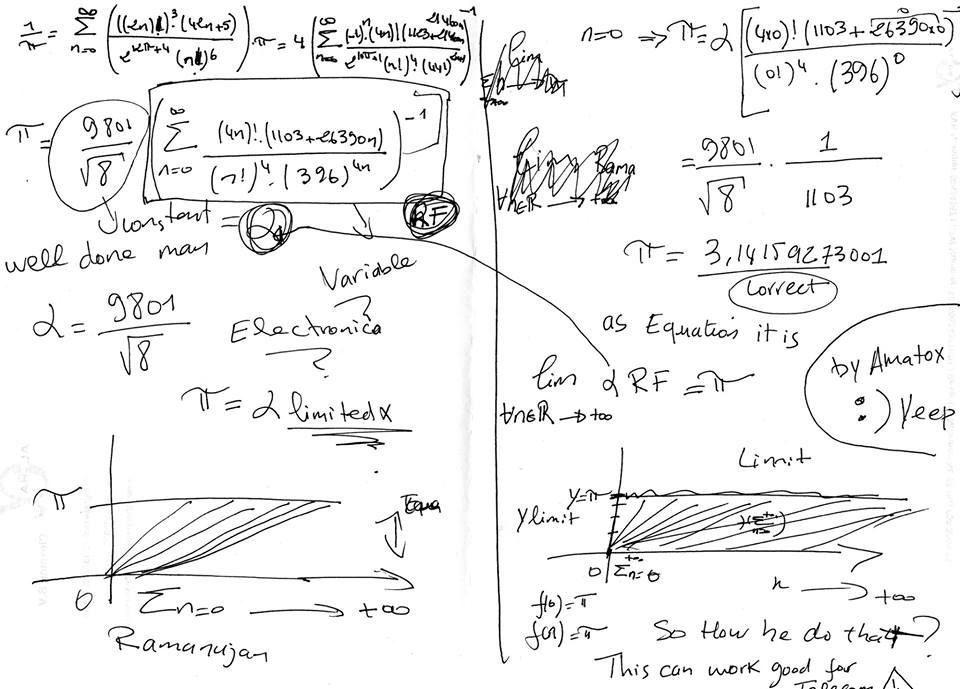 1/π = ∑ n=0 ∞ ( ((2n)!)³·(42n+5) / 2^(12n+4) (n!)⁶ ) · π = 4 ( ∑ n=0 ∞ (-1)ⁿ·(4n)!(1123+21460n) / (n!)⁴·(441) )⁻¹
π = 9801/√8 ( ∑ n=0 ∞ (4n)!·(1103+26390n) / (n!)⁴·(396)^4n )⁻¹
constant = α RF
well done man
Variable ?
α = 9801/√8
Electronica ?
π = α limited x
π
Equa
0 ∑n=0 → +∞
Ramanujan
lim
n=0 ⇒ π = α [ (4x0)!(1103+26390x0) / (0!)⁴·(396)⁰ ]⁻¹
Rama
∀n∈ℝ → +∞
= 9801/√8 · 1/1103
π = 3,14159273001
Correct
as Equation it is
lim α RF = π
∀n∈ℝ → +∞
by Amatox
:) Yeep
Limit
y=π
y limit
0 ∑n=0 +∞
x → +∞
f(0)=π
f(n)=π
So How he do that ?
This can work good for